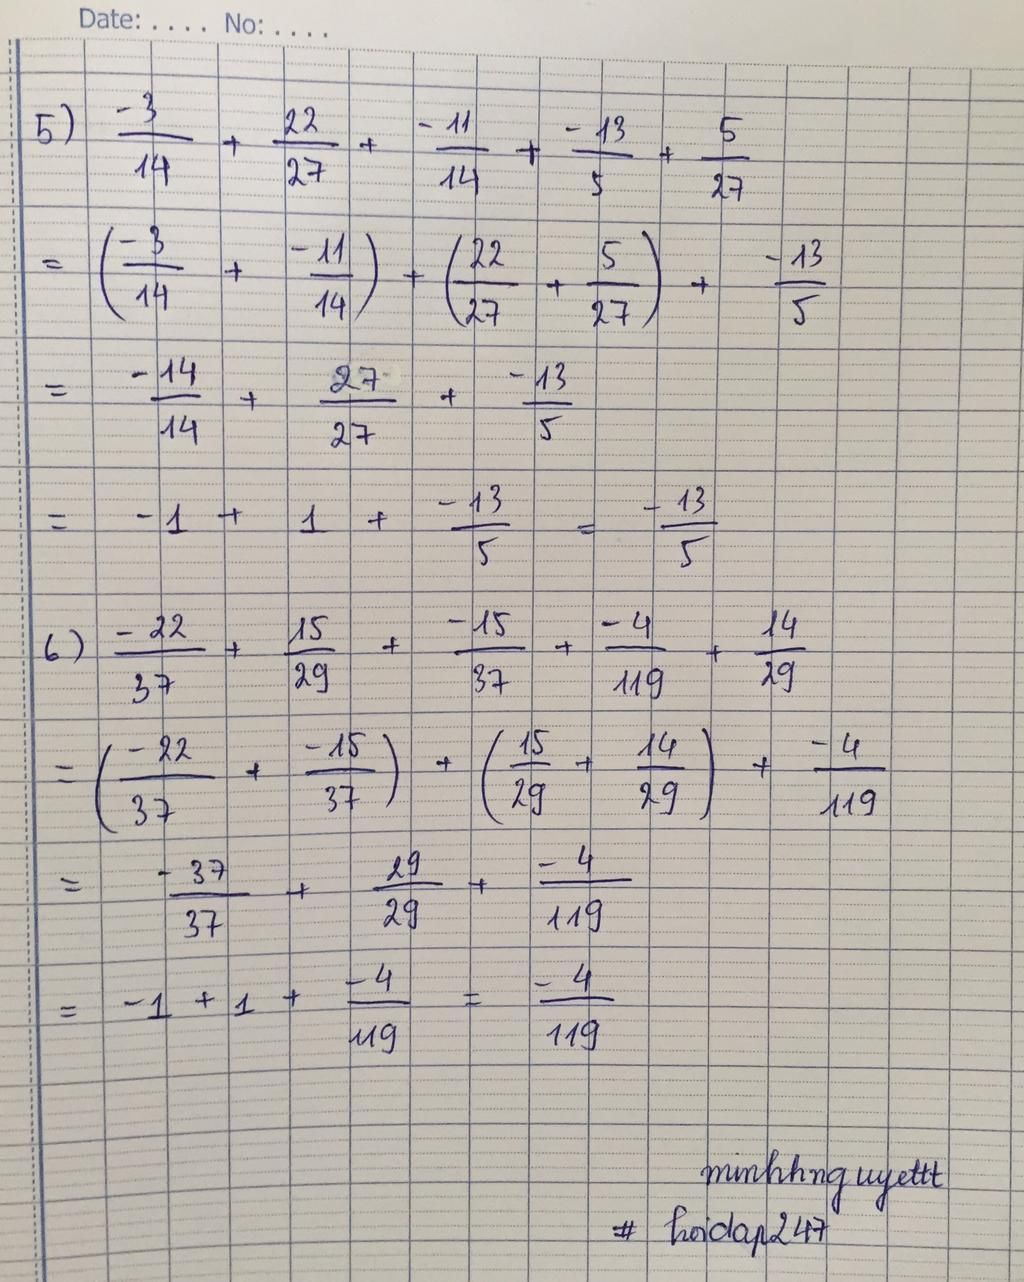 Date: .... No: ....
5) -3/14 + 22/27 + -11/14 + -13/5 + 5/27
= (-3/14 + -11/14) + (22/27 + 5/27) + -13/5
= -14/14 + 27/27 + -13/5
= -1 + 1 + -13/5 = -13/5
6) -22/37 + 15/29 + -15/37 + -4/119 + 14/29
= (-22/37 + -15/37) + (15/29 + 14/29) + -4/119
= -37/37 + 29/29 + -4/119
= -1 + 1 + -4/119 = -4/119
minhhnguyettt
# hoidap247